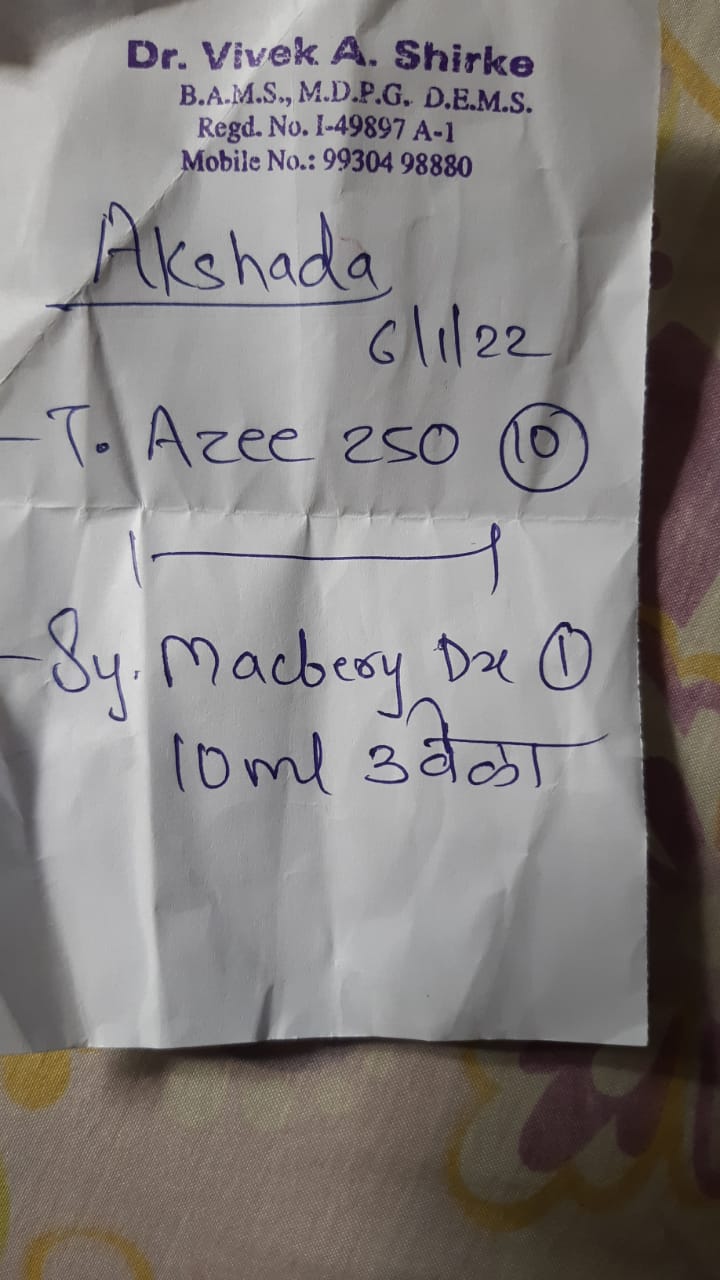 Dr. Vivek A. Shirke
B.A.M.S., M.D.P.G. D.E.M.S.
Regd. No. I-49897 A-1
Mobile No.: 99304 98880
Akshada
6/1/22
- T. Azee 250 10
1 — 1
- Sy. Macbery Dx 1
10ml 3 वेळा